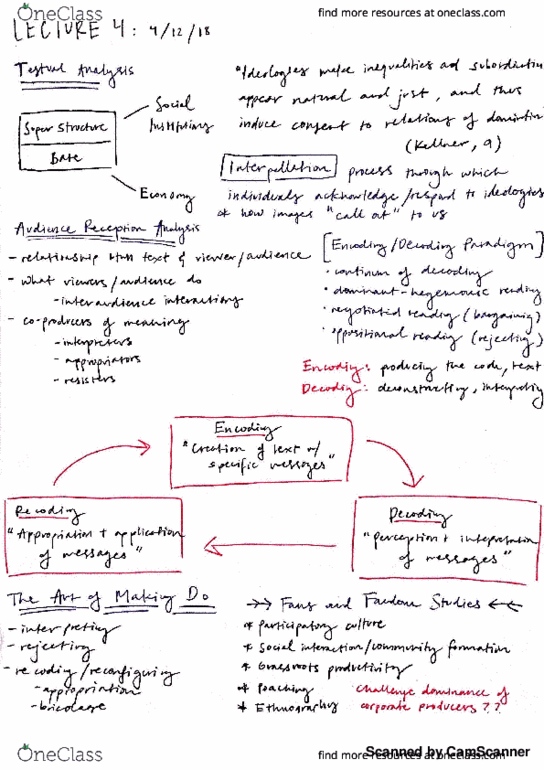 OneClass
find more resources at oneclass.com
LECTURE 4: 4/12/18
Textual Analysis
Super Structure
Base
Social
Institutions
Economy
"Ideologies make inequalities and subordination
appear natural and just, and thus
induce consent to relations of domination
(Kellner, 9)
Interpellation process through which
individuals acknowledge/respond to ideologies
* how images "call out" to us
Audience Reception Analysis
- relationship btwn text & viewer/audience
- what viewers/audience do
- interaudience interactions
- co-producers of meaning
- interpreters
- appropriators
- resisters
[Encoding/Decoding Paradigm]
· continuum of decoding
· dominant-hegemonic reading
· negotiated reading (bargaining)
· oppositional reading (rejecting)
Encoding: producing the code, text
Decoding: deconstructing, interpreting
Encoding
"Creation of text w/
specific messages"
Recoding
"Appropriation + application
of messages"
Decoding
"perception + interpretation
of messages"
The Art of Making Do
- interpreting
- rejecting
- recoding/reconfiguring
- appropriation
- bricolage
→→ Fans and Fandom Studies ←←
* Participatory culture
* Social interaction/community formation
* Grassroots productivity
* Poaching
* Ethnography
challenge dominance of
corporate producers??
OneClass
find more resources at oneclass.com
Scanned by CamScanner